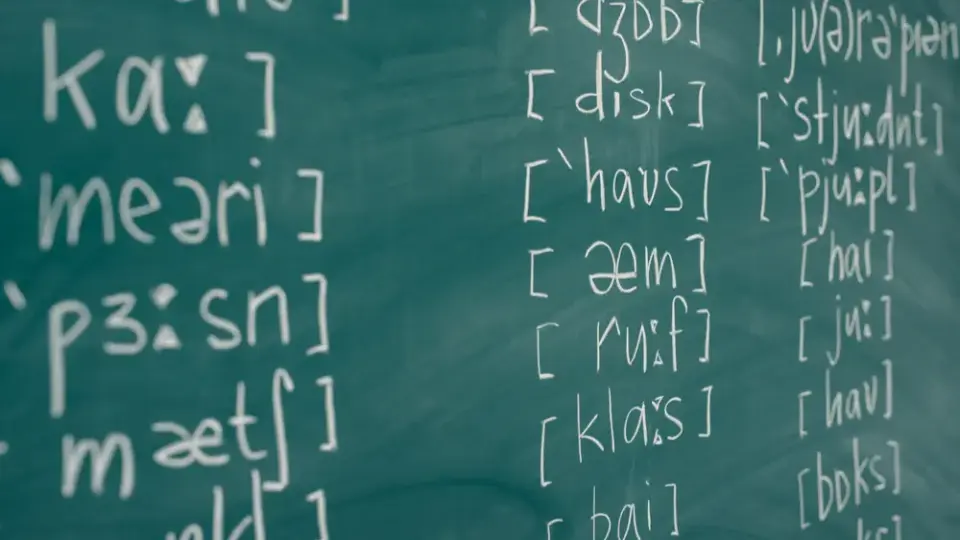 kɑː]
ˋmeəri]
ˋpɜːsn]
mætʃ]
[dʒɒb]
[disk]
[ˋhaʊs]
[æm]
[ruːf]
[klɑːs]
[bai]
[ˌjʊ(ə)rəˋpɪən
[ˋstjuːdnt]
[ˋpjuːpl]
[haɪ]
[juː]
[haʊ]
[bɒks]